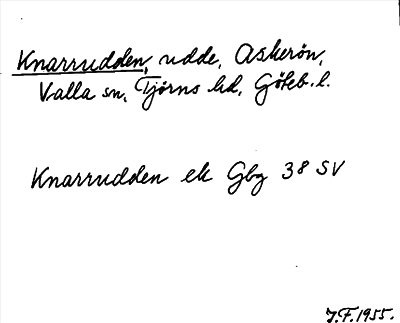 Knarrudden, udde, Askerön,
Valla sn, Tjörns hd, Göteb. l.
Knarrudden ek Gbg 38 SV
J.F. 1955.